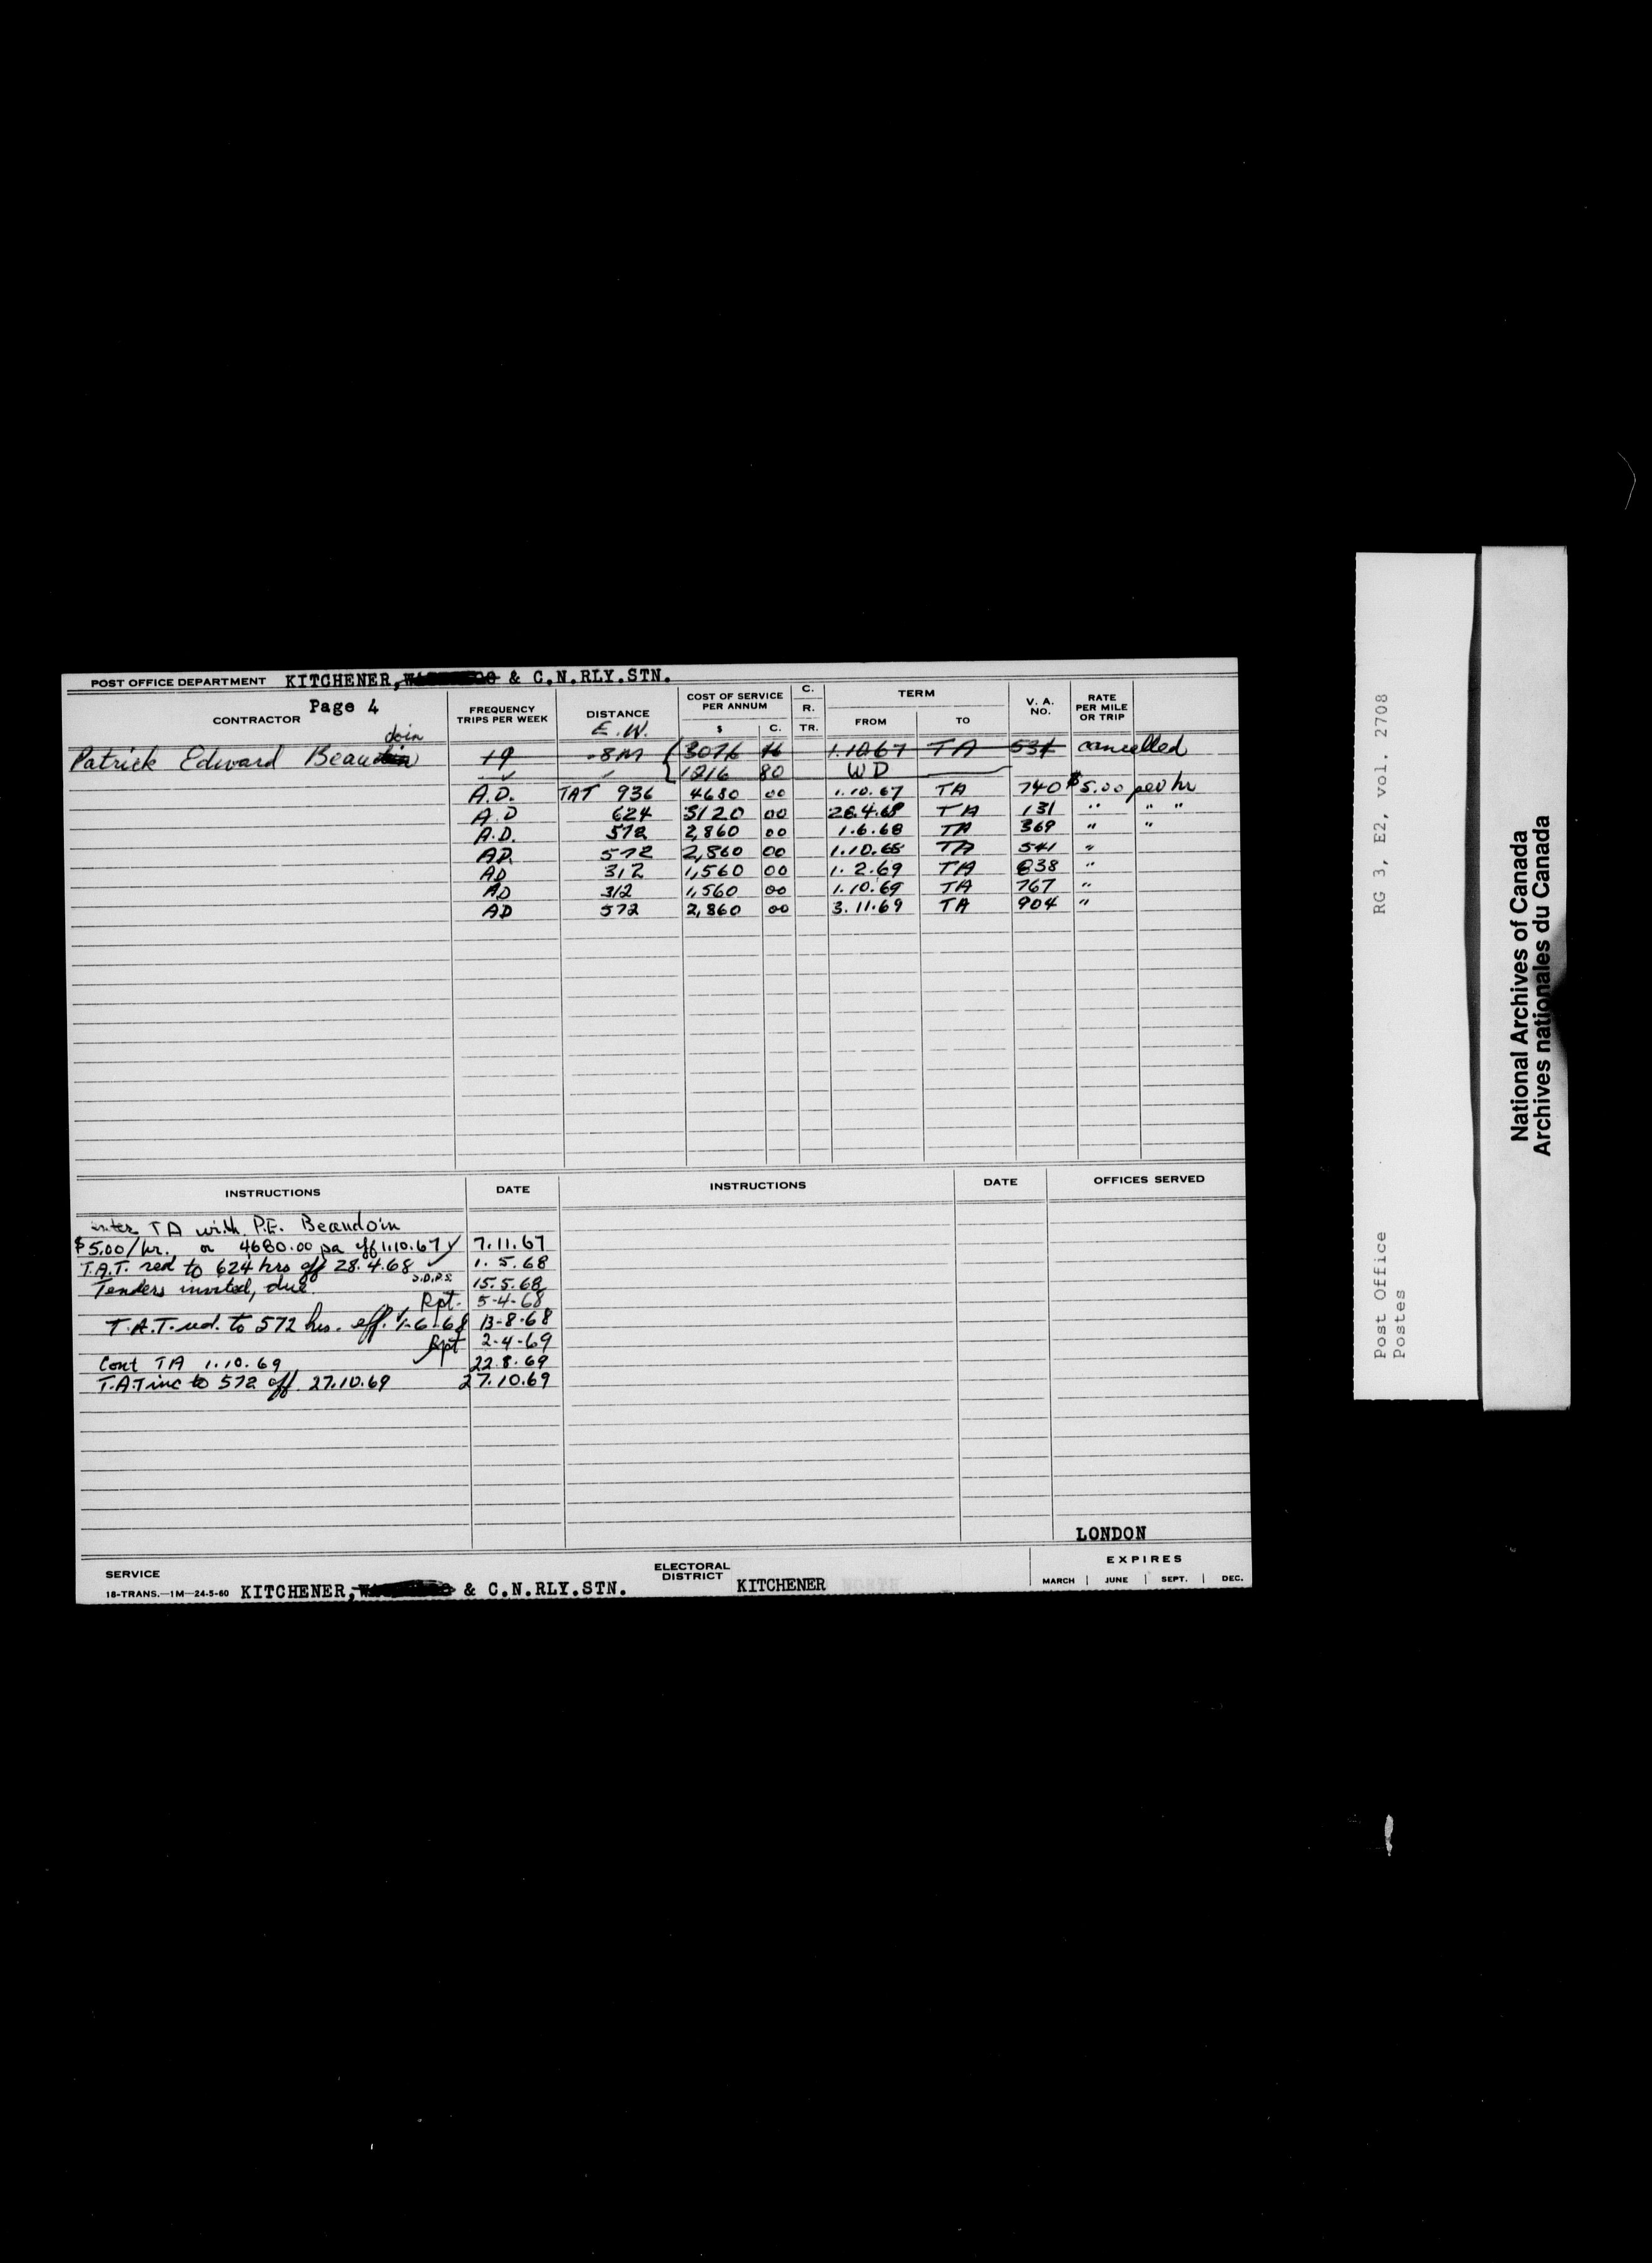 POST OFFICE DEPARTMENT KITCHENER, & C.N.RLY.STN.
Page 4
CONTRACTOR FREQUENCY TRIPS PER WEEK DISTANCE E.W. COST OF SERVICE PER ANNUM $ C. C. R. TR. TERM FROM TO V. A. NO. RATE PER MILE OR TRIP
Patrick Edward Beaudoin 19 .8M 3076 16 1.10.67 TA 531 cancelled
1216 80 WD
A.D. TAT 936 4680 00 1.10.67 TA 740 $5.00 per hr
A.D 624 3120 00 28.4.68 TA 131 " " "
A.D. 572 2,860 00 1.6.68 TA 369 " "
AD. 572 2,860 00 1.10.68 TA 541 "
AD 312 1,560 00 1.2.69 TA 838 "
AD 312 1,560 00 1.10.69 TA 767 "
AD 572 2,860 00 3.11.69 TA 904 "
INSTRUCTIONS DATE INSTRUCTIONS DATE OFFICES SERVED
enter TA with P.E. Beaudoin
$5.00/hr. or 4680.00 pa eff 1.10.67 7.11.67
T.A.T. red to 624 hrs eff 28.4.68 1.5.68
Tenders invited, due S.D.P.S. 15.5.68
Rpt. 5-4-68
T.A.T. red. to 572 hrs. eff. 1-6-68 13-8-68
Rpt 2-4-69
Cont TA 1.10.69 22.8.69
T.A.T inc to 572 eff. 27.10.69 27.10.69
LONDON
SERVICE
18-TRANS.—1M—24-5-60 KITCHENER, & C.N.RLY.STN.
ELECTORAL DISTRICT KITCHENER
EXPIRES
MARCH JUNE SEPT. DEC.
Post Office RG 3, E2, vol. 2708
Postes
National Archives of Canada
Archives nationales du Canada